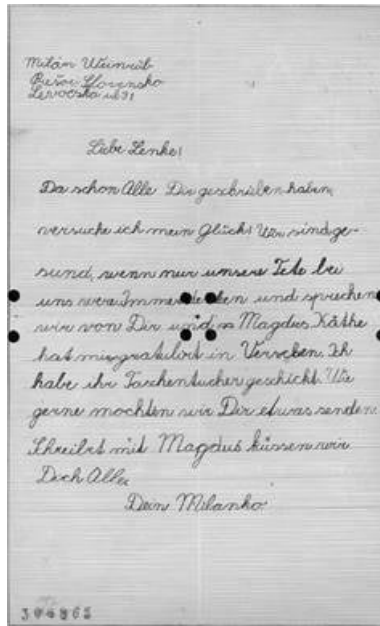 Milán Weinréb
Prešov Slovensko
Levočska ul 31
Liebe Lenke!
Da schon Alle Dir geschrieben haben,
versuche ich mein Glück! Wir sind ge-
sund, wenn nur unsere Tete bei
uns were Immer denken und sprechen
wir von Dir und Magdus. Käthe
hat mir gratulirt in Verscben. Ich
habe ihr Taschentucher geschickt. Wie
gerne mochten wir Dir etwas senden.
Schreibt mit Magdus küssen wir
Dich Alle.
Dein Milanko.
304862